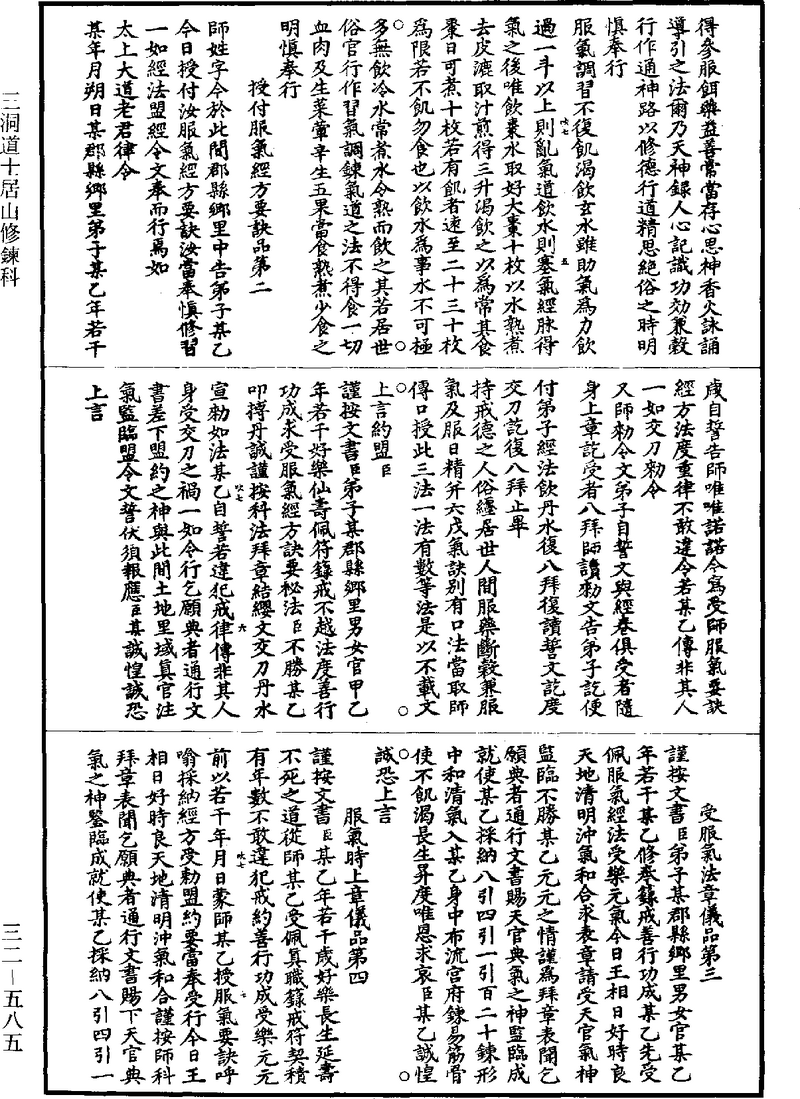 得參服餌藥益善常當存心思神香火詠誦
導引之法爾乃天神録人心記識功効兼穀
行作通神路以修德行道精思絶俗之時明
慎奉行
服氣調習不復飢渴飲玄水雖助氣爲力飲
過一斗以上則亂氣道飲水則塞氣經脉得
氣之後唯飲棗水取好大棗十枚以水熟煮
去皮漉取汁煎得三升渴飲之以爲常其食
棗日可煮十枚若有飢者速至二十三十枚
爲限若不飢勿食也以飲水爲事水不可極
多無飲冷水常煮水令熟而飲之其若居世
俗官行作習氣調鍊氣道之法不得食一切
血肉及生菜葷辛生五果當食熟煮少食之
明慎奉行
授付服氣經方要訣品第二
師姓字今於此間郡縣鄉里中告弟子某乙
今日授付汝服氣經方要訣汝當奉慎修習
一如經法盟經令文奉而行焉如
太上大道老君律令
某年月朔日某郡縣鄉里弟子某乙年若干
歲自誓告師唯唯諾諾今寫受師服氣要訣
經方法度重律不敢違令若某乙傳非其人
一如交刀勑令
又師勑令文弟子自誓文與經卷俱受者隨
身上章訖受者八拜師讀勑文告弟子訖便
付弟子經法飲丹水復八拜復讀誓文訖度
交刀訖復八拜止畢
持戒德之人俗纏居世人間服藥斷穀兼服
氣及服日精并六戊氣訣别有口法當取師
傳口授此三法一法有數等法是以不載文
上言約盟臣
謹按文書臣弟子某郡縣鄉里男女官甲乙
年若干好樂仙壽佩符籙戒不越法度善行
功成求受服氣經方訣要秘法臣不勝某乙
叩搏丹誠謹按科法拜章結纓文交刀丹水
宣勑如法某乙自誓若違犯戒律傳非其人
身受交刀之禍一如令行乞願典者通行文
書差下盟約之神與此間土地里域真官注
氣監臨盟令文誓伏須報應臣某誠惶誠恐
上言
受服氣法章儀品第三
謹按文書臣弟子某郡縣鄉里男女官某乙
年若干某乙修奉籙戒善行功成某乙先受
佩服氣經法受樂元氣今日王相日好時良
天地清明沖氣和合求表章請受天官氣神
監臨不勝某乙元元之情謹爲拜章表聞乞
願典者通行文書賜天官典氣之神監臨成
就使某乙採納八引四引一引百二十鍊形
中和清氣入某乙身中布流宫府鍊易筋骨
使不飢渴長生昇度唯恩求哀臣某乙誠惶
誠恐上言
服氣時上章儀品第四
謹按文書臣某乙年若干歲好樂長生延壽
不死之道從師某乙受佩真職籙戒符契積
有年數不敢違犯戒約善行功成受樂元元
前以若干年月日蒙師某乙授服氣要訣呼
噏採納經方受勑盟約要當奉受行今日王
相日好時良天地清明沖氣和合謹按師科
拜章表聞乞願典者通行文書賜下天官典
氣之神監臨成就使某乙採納八引四引一
三洞道士居山修鍊科
三二—五八五